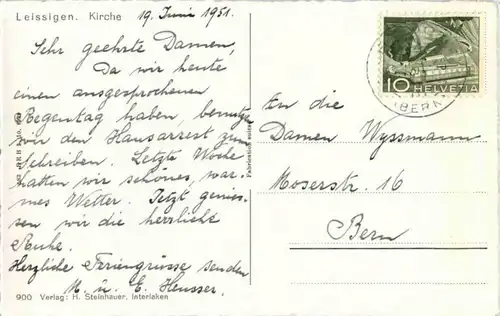 Leissigen. Kirche
19. Juni 1951.
Sehr geehrte Damen,
Da wir heute
einen ausgesprochenen
Regentag haben, benutzen
wir den Hausarrest zum
schreiben. Letzte Woche
hatten wir schönes, war-
mes Wetter. Jetzt genies-
sen wir die herrliche
Ruhe.
Herzliche Feriengrüsse senden
M. u. E. Heusser.
900 Verlag: H. Steinhauer, Interlaken
10 HELVETIA
(BERN)
An die
Damen Wyssmann
Moserstr. 16
Bern